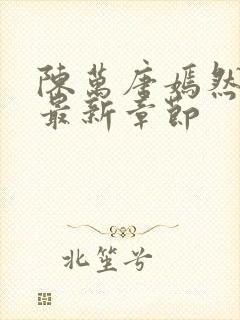 陳萬唐嫣然
最新章節
北笙兮